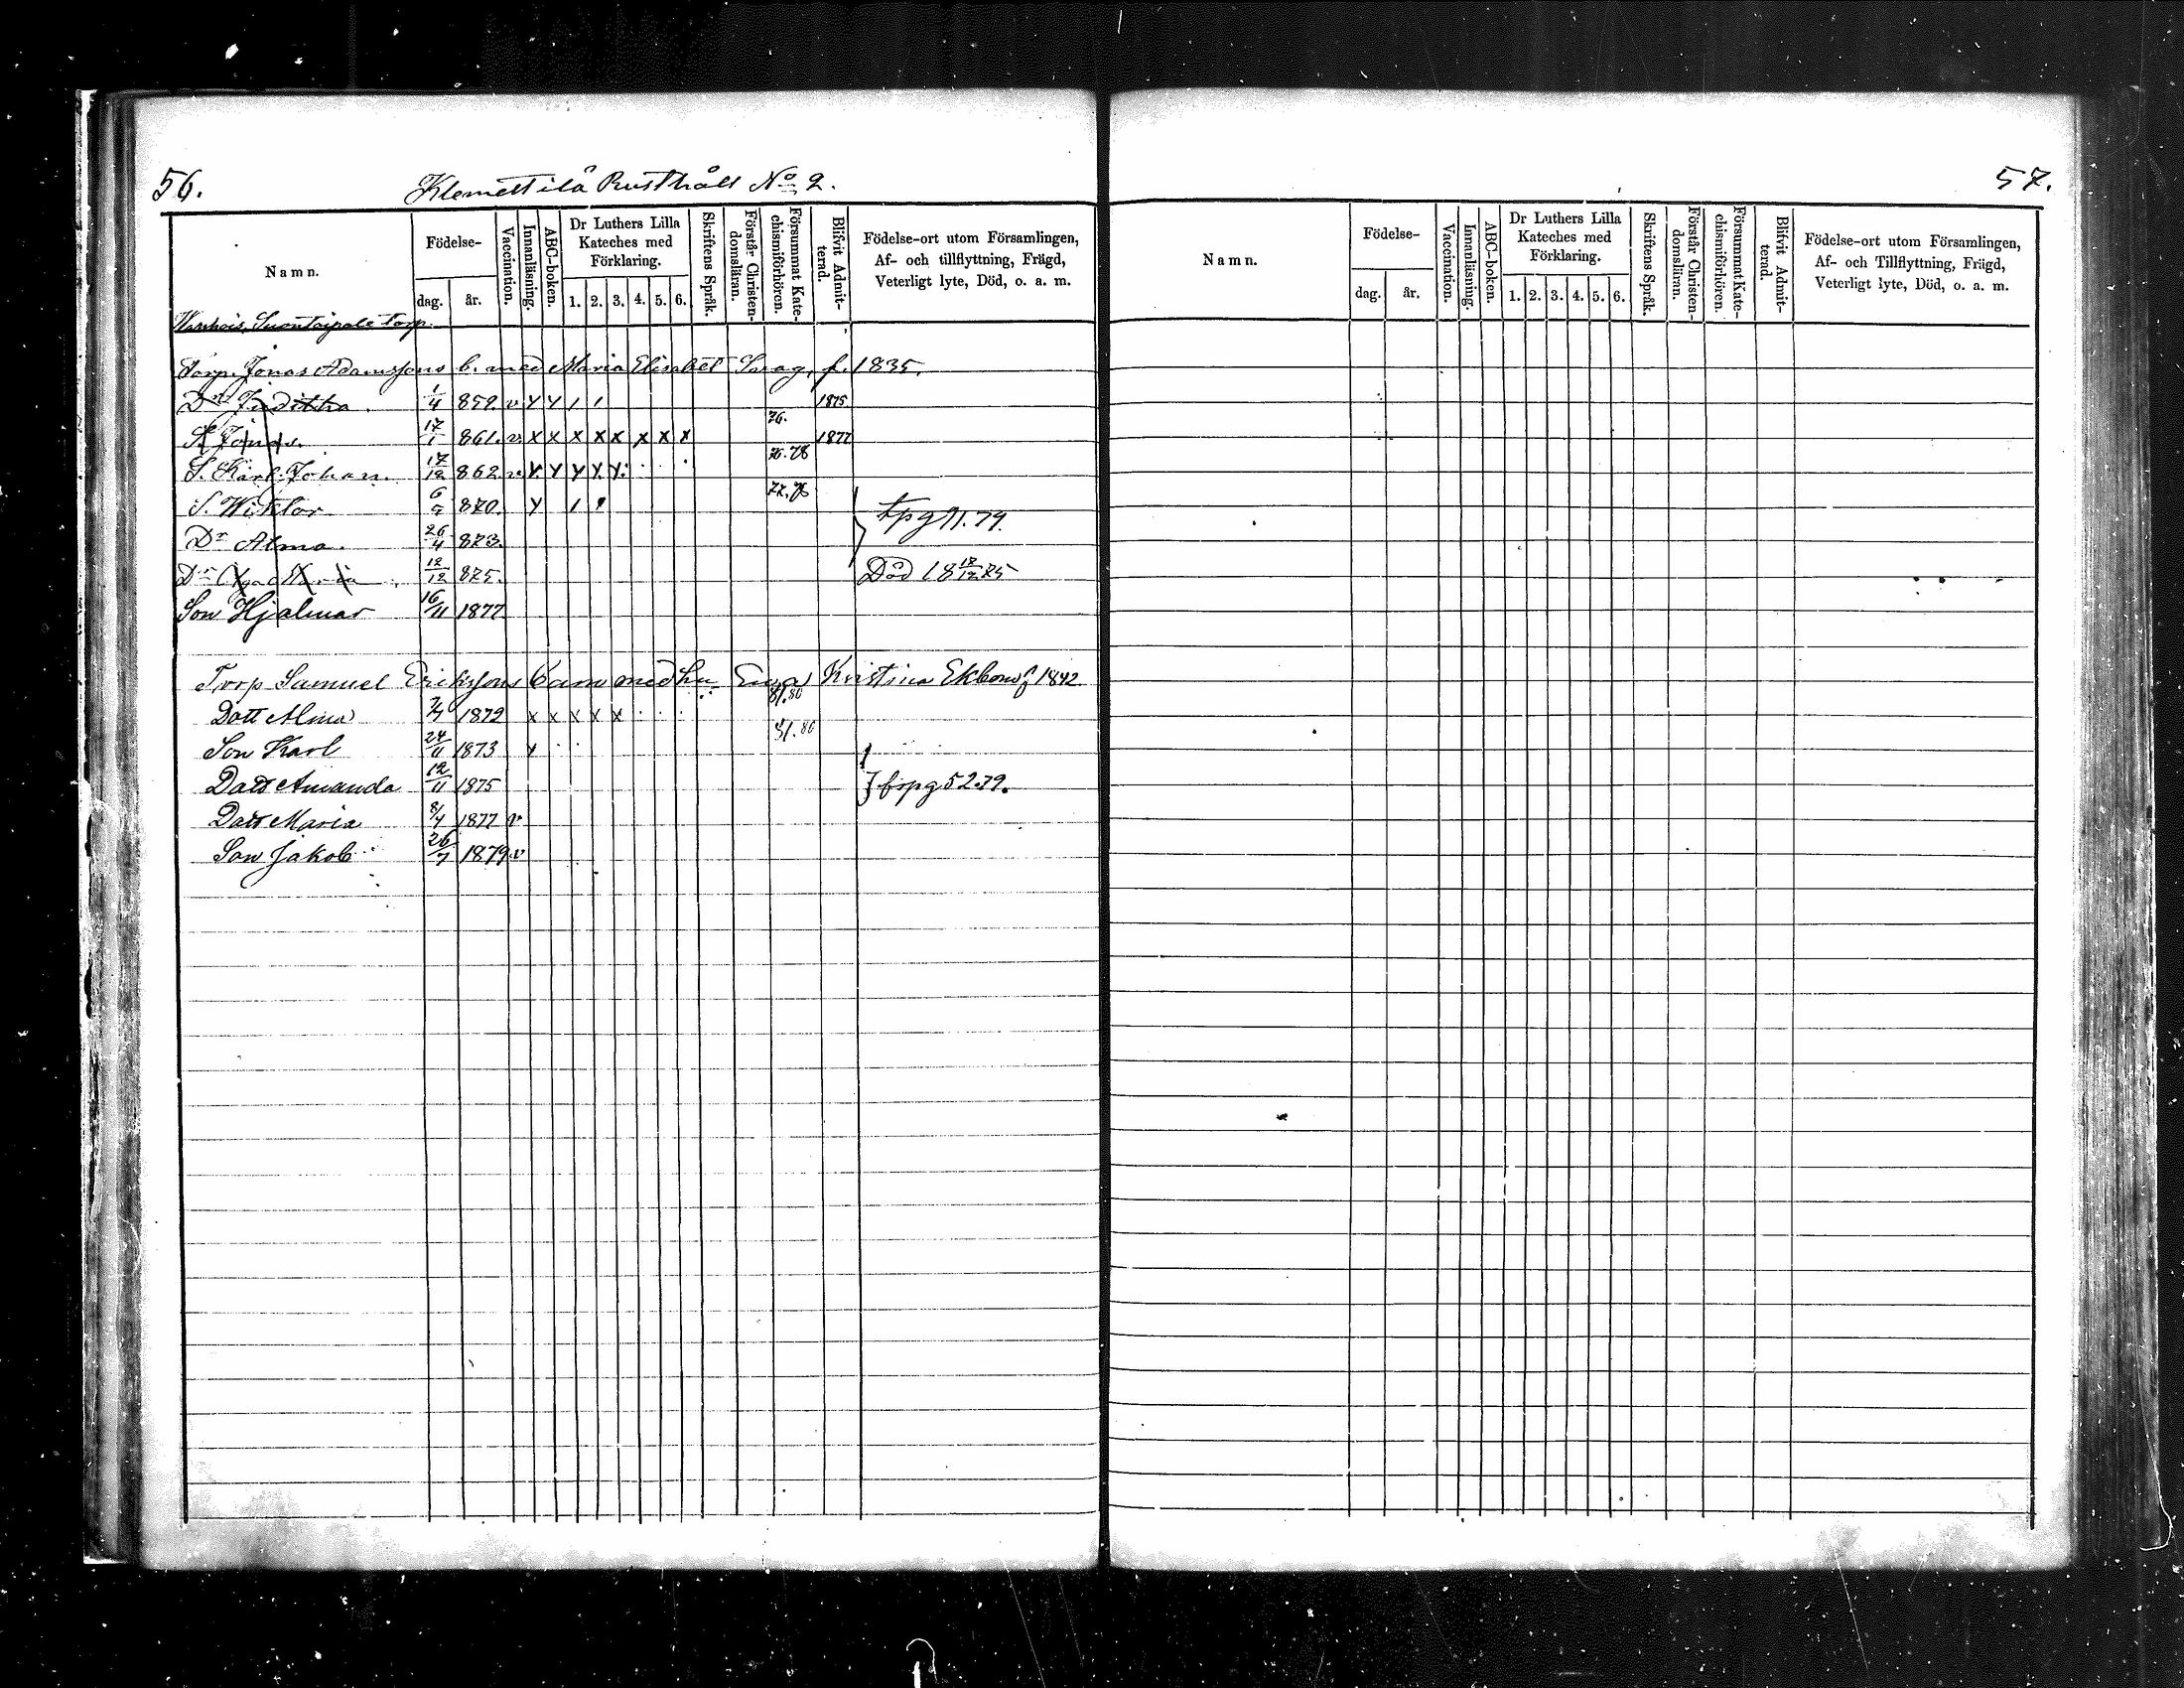 56.
Klemettilä Rusthåll No 2.
Namn.
Födelse-
dag. år.
Vaccination.
Innanläsning.
ABC-boken.
Dr Luthers Lilla Kateches med Förklaring.
1. 2. 3. 4. 5. 6.
Skriftens Språk.
Förstår Christen-domsläran.
Försummat Kate-chismiförhören.
Blifvit Admit-terad.
Födelse-ort utom Församlingen, Af- och tillflyttning, Frägd, Veterligt lyte, Död, o. a. m.
Suontaipale torp.
Torp. Jonas Adamssons b. med Maria Elisabet f. 1835.
Dr Juditha. 1/4 859. v Y Y 1 1 1875
S. Jonas. 17/1 861. v. X X X X X X X X 76. 1877
S. Karl Johan. 17/12 862. v. Y. Y Y Y. Y. 76.78
S. Wiktor 870. Y 1 1 77.76
Dr Alma. 26/4 873. tpg 71.79.
Dr 12/12 875. Död 18 75
Son Hjalmar 16/11 1877
Torp Samuel Erikssons barn med hu Eva Kristina Ekbom f 1842
Dott Alma 1872 X X X X X 81.80
Son Karl 24/11 1873 Y 81.80
Dott Amanda 12/11 1875 } frpg 52.79.
Dott Maria 8/4 1877 v
Son Jakob 26/7 1879 v
57.
Namn.
Födelse-
dag. år.
Vaccination.
Innanläsning.
ABC-boken.
Dr Luthers Lilla Kateches med Förklaring.
1. 2. 3. 4. 5. 6.
Skriftens Språk.
Förstår Christen-domsläran.
Försummat Kate-chismiförhören.
Blifvit Admit-terad.
Födelse-ort utom Församlingen, Af- och Tillflyttning, Frägd, Veterligt lyte, Död, o. a. m.